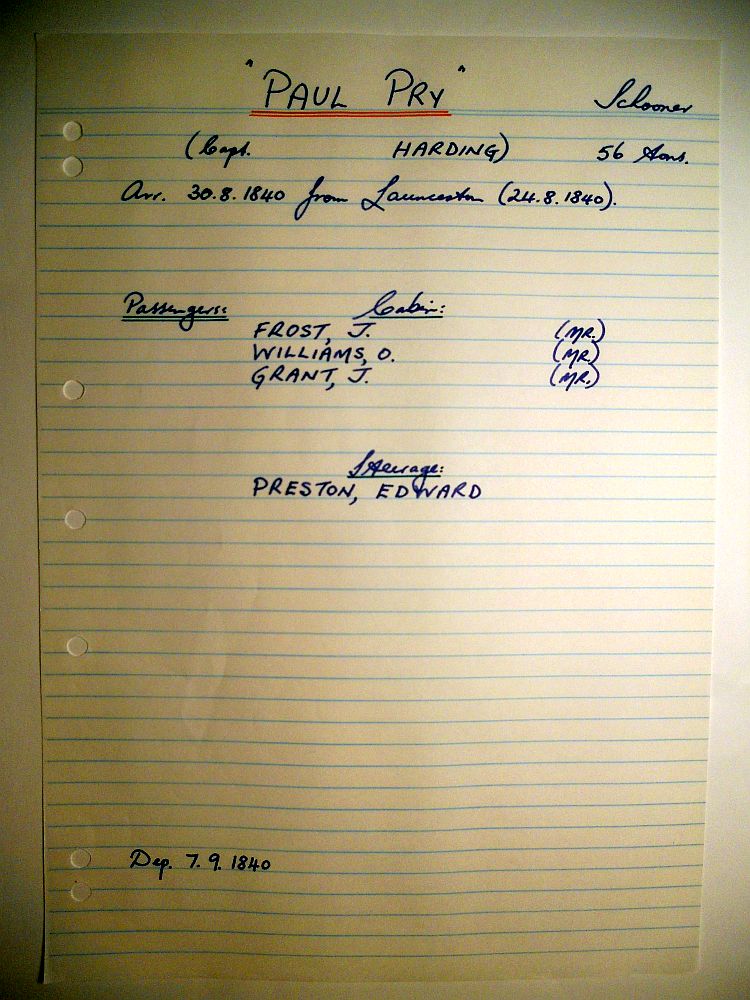 "PAUL PRY" Schooner
(Capt. HARDING) 56 tons.
Arr. 30.8.1840 from Launceston (24.8.1840).
Passengers: Cabin:
FROST, J. (MR.)
WILLIAMS, O. (MR.)
GRANT, J. (MR.)
Steerage:
PRESTON, EDWARD
Dep. 7.9.1840